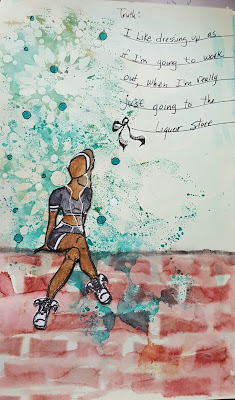 Truth:
I Like dressing up as
if I'm going to work
out, when I'm really
Just going to the
Liquor Store